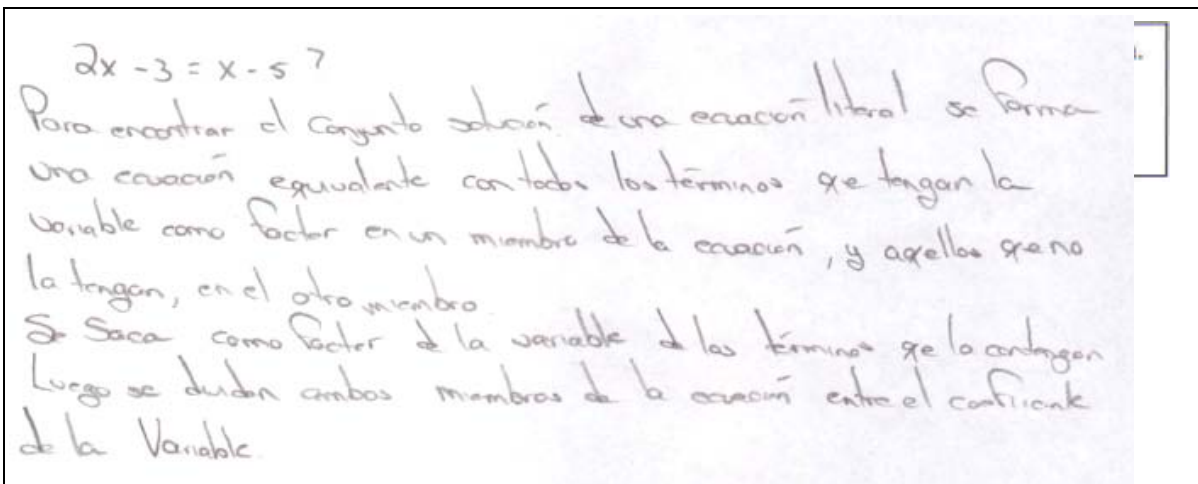 2x - 3 = x - 5 ?
Para encontrar el conjunto solución de una ecuación literal se forma
una ecuación equivalente con todos los términos que tengan la
variable como factor en un miembro de la ecuación, y aquellos que no
la tengan, en el otro miembro.
Se Saca como factor a la variable de los términos que la contengan
Luego se dividen ambos miembros de la ecuación entre el coeficiente
de la Variable.